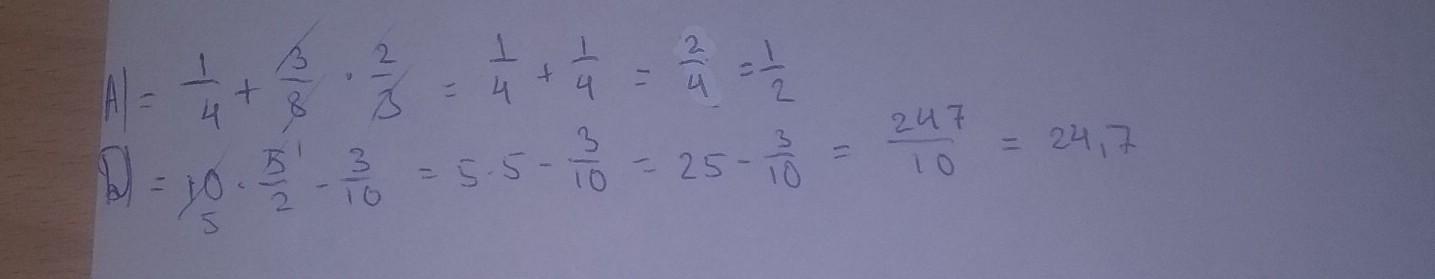 A) = 1/4 + 3/8 · 2/3 = 1/4 + 1/4 = 2/4 = 1/2
D) = 10 · 5/2 - 3/10 = 5·5 - 3/10 = 25 - 3/10 = 247/10 = 24,7
5